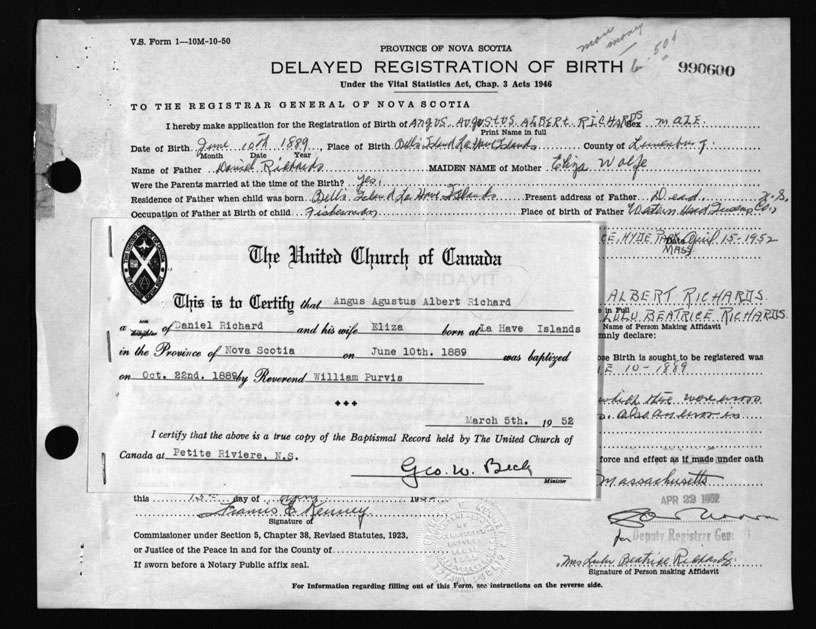 V.S. Form 1—10M-10-50
more money
50¢
PROVINCE OF NOVA SCOTIA
DELAYED REGISTRATION OF BIRTH
990600
Under the Vital Statistics Act, Chap. 3 Acts 1946
TO THE REGISTRAR GENERAL OF NOVA SCOTIA
I hereby make application for the Registration of Birth of ANGUS AUGUSTUS ALBERT RICHARDS Sex MALE
Print Name in full
Date of Birth June 10TH 1889 Place of Birth Bell's Island La Have Islands County of Lunenburg
Month Date Year
Name of Father Daniel Richards MAIDEN NAME of Mother Eliza Wolfe
Were the Parents married at the time of the Birth? Yes
Residence of Father when child was born Bell's Island La Have Islands Present address of Father Dead
Occupation of Father at Birth of child Fisherman Place of birth of Father
HYDE PARK MASS Date April 15-1952
The United Church of Canada
This is to Certify that Angus Agustus Albert Richard
a son daughter of Daniel Richard and his wife Eliza born at La Have Islands
in the Province of Nova Scotia on June 10th. 1889 was baptized
on Oct. 22nd. 1889 by Reverend William Purvis
March 5th. 1952
I certify that the above is a true copy of the Baptismal Record held by The United Church of
Canada at Petite Riviere, N.S.
Geo. W. Beck
Minister
ALBERT RICHARDS
in Full
LULU BEATRICE RICHARDS
Name of Person Making Affidavit
mnly declare:
ose Birth is sought to be registered was
E 10-1889
which there were errors
also an error in
force and effect as if made under oath
Massachusetts
APR 22 1952
for Deputy Registrar Gen
this 15th day of April 19
Francis E. Kenney
Signature of
Commissioner under Section 5, Chapter 38, Revised Statutes, 1923,
or Justice of the Peace in and for the County of
If sworn before a Notary Public affix seal.
Mrs Lulu Beatrice Richards
Signature of Person making Affidavit
For Information regarding filling out of this Form, see instructions on the reverse side.